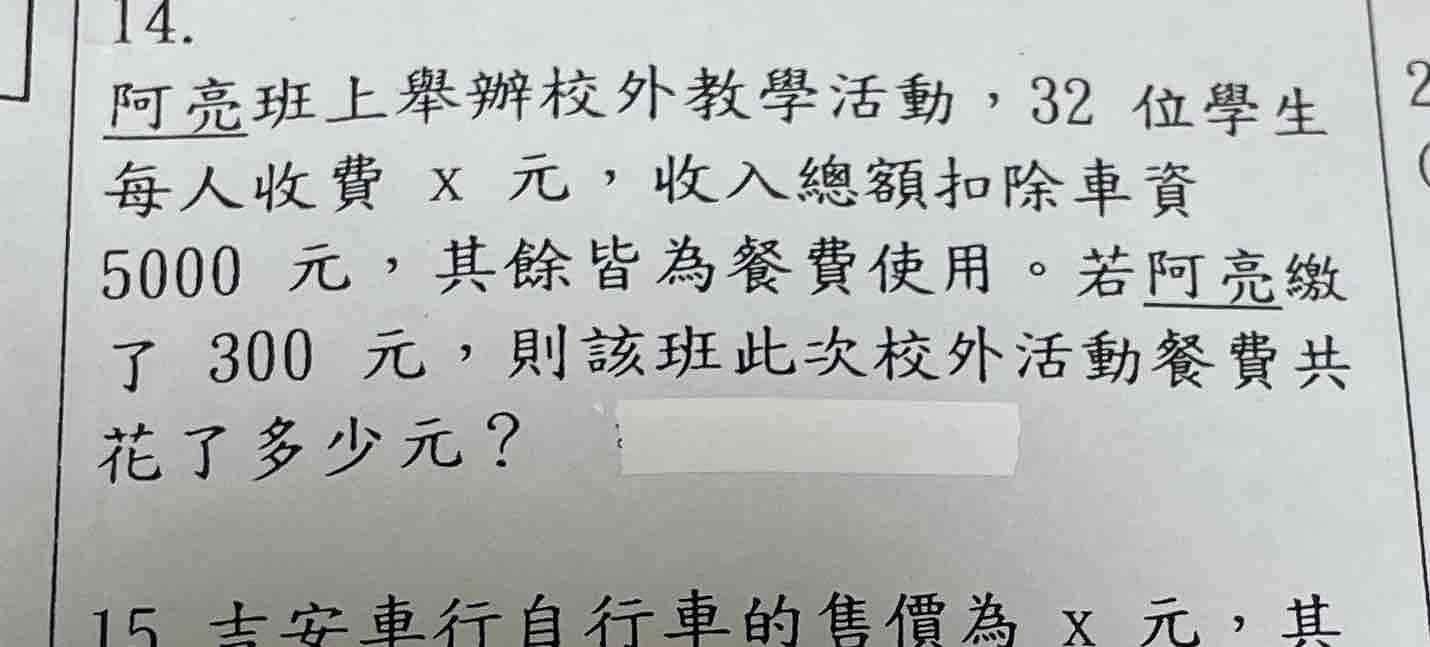 14.
阿亮班上舉辦校外教學活動，32 位學生
每人收費 x 元，收入總額扣除車資
5000 元，其餘皆為餐費使用。若阿亮繳
了 300 元，則該班此次校外活動餐費共
花了多少元？
15 吉安車行自行車的售價為 x 元，其
2
(